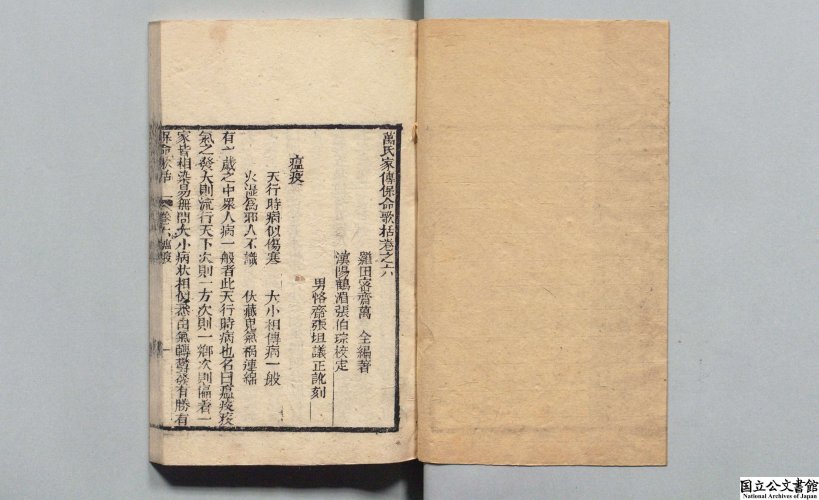 萬氏家傳保命歌括卷之六
羅田密齋萬 全編著
漢陽鶴湄張伯琮校定
男恪齋張坦議正訛刻
瘟疫
天行時病似傷寒 大小相傳病一般
火濕為邪人不識 伏藏鬼氣禍連綿
有一歲之中眾人病一般者此天行時病也名曰瘟疫疫
氣之發大則流行天下次則一方次則一鄉次則偏着一
家皆相染易無問大小病狀相似悉由氣轉鬱發有勝有
保命歌括 卷六瘟疫 一
国立公文書館
National Archives of Japan